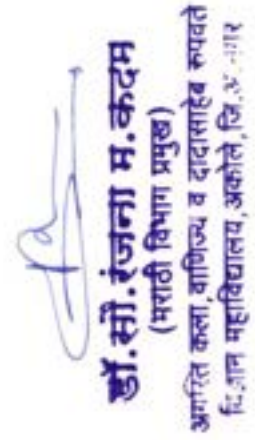 डॉ.सौ.रंजना म.कदम
(मराठी विभाग प्रमुख)
अगस्ति कला,वाणिज्य व दादासाहेब रुपवते
विज्ञान महाविद्यालय,अकोले,जि.अ.नगर